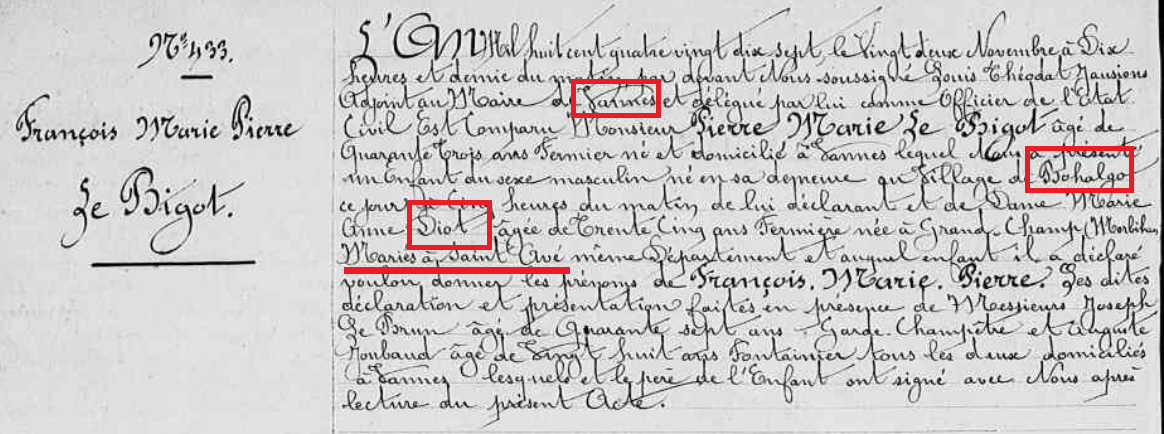 N° 433.
François Marie Pierre
Le Bigot.
L'An Mil huit cent quatre vingt dix sept, le Vingt deux Novembre à Dix
heures et demie du matin, par devant Nous soussigné Louis Théodat Jausions
Adjoint au Maire de Vannes et délégué par lui comme Officier de l'Etat
Civil Est Comparu Monsieur Pierre Marie Le Bigot âgé de
Quarante Trois ans Fermier né et domicilié à Vannes lequel Nous a présenté
un Enfant du sexe masculin né en sa demeure au Village de Bohalgo
ce jour à Cinq heures du matin de lui déclarant et de Dame Marie
Anne Diot âgée de Trente Cinq ans Fermière née à Grand-Champ (Morbihan)
Mariés à Saint Avé même Département et auquel enfant il a déclaré
vouloir donner les prénoms de François. Marie. Pierre. Les dites
déclaration et présentation faites en présence de Messieurs Joseph
Le Brun âgé de Quarante sept ans Garde-Champêtre et Auguste
Joubaud âgé de Vingt huit ans Fontainier tous les deux domiciliés
à Vannes lesquels et le père de l'Enfant ont signé avec Nous après
lecture du présent Acte.